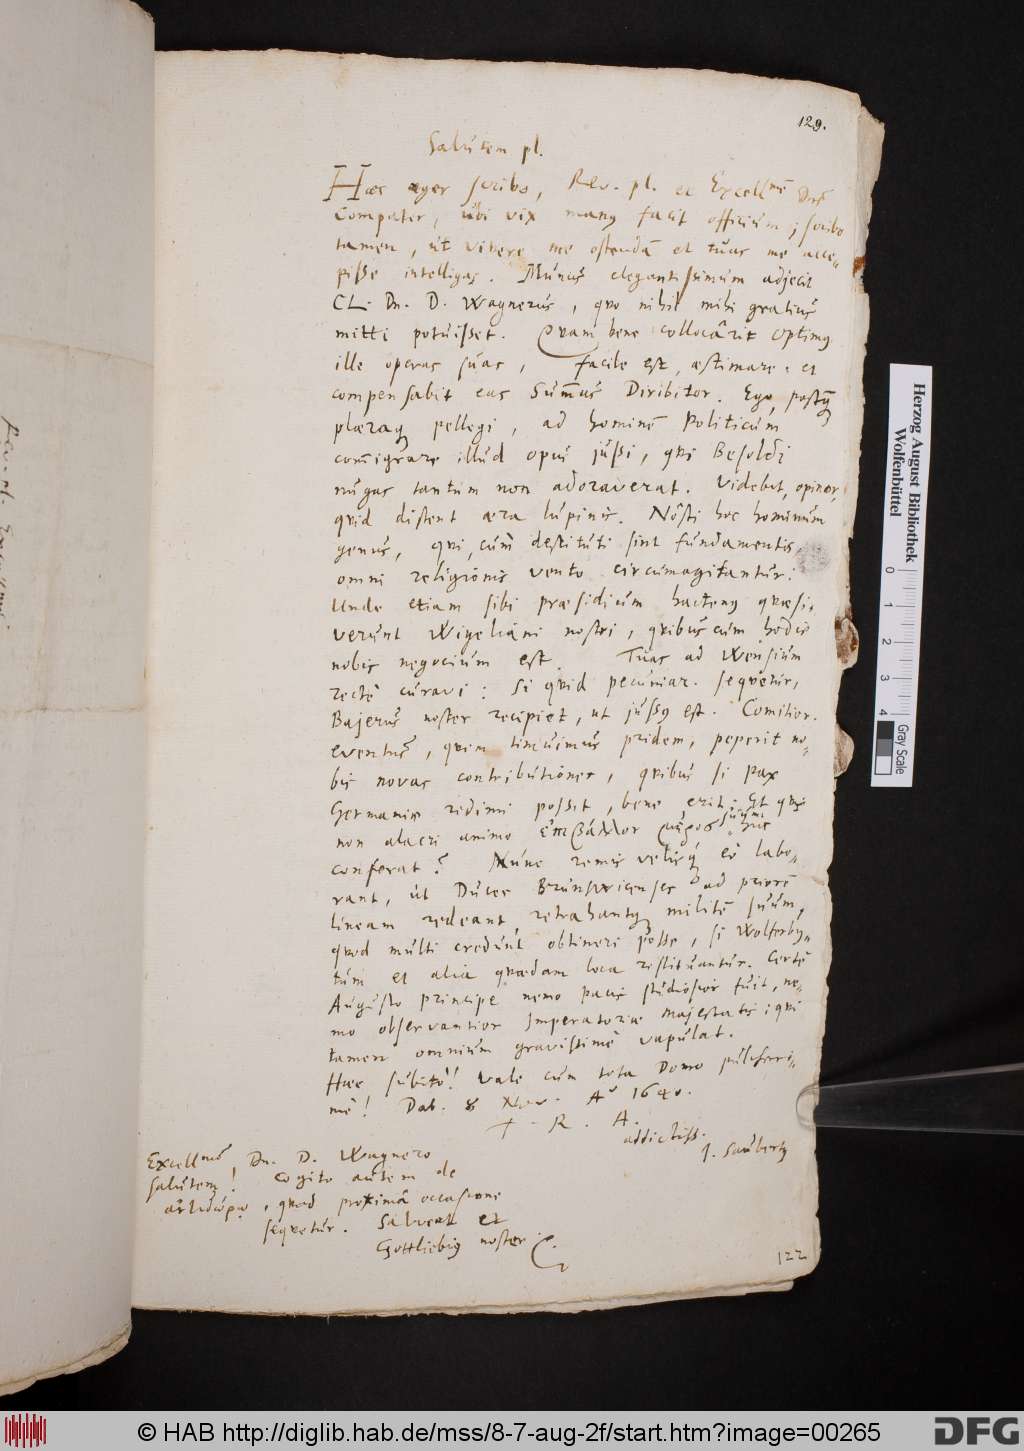 129.
Salutem pl.
Haec aeger scribo, Rev. pl. et Excellme Dne
Compater, ubi vix manus facit officium; scribo
tamen, ut vivere me ostendã et tuas me acce-
pisse intelligas. Munus elegantissimum adjecit
CL. Dn. D. Wagnerus, quo nihil mihi gratius
mitti potuisset. Quam bene collocârit optimus
ille operas suas, facile est, æstimare: et
compensabit eas Sum̃us Diribitor. Ego, postq̃
pleraq pellegi, ad hominẽ Politicum
com̃igrare illud opus jussi, qui Besoldi
nugas tantum non adoraverat. Videbit, opinor,
quid distent æra lupinis. Nôsti hoc hominum
genus, qui, cum destituti sint fundamentis,
omni religionis vento circumagitantur:
Unde etiam sibi præsidium hactenus quæsi-
verunt Wigeliani nostri, quibuscum hodie
nobis negocium est. Tuas ad Wensium
rectè curavi: si quid pecuniar. sequetur,
Bajerus noster recipiet, ut jussus est. Comitior.
eventus, quem timuimus pridem, peperit no-
bis novas contributiones, quibus si pax
Germaniæ redimi possit, bene erit. Et quis
non alacri animo συμβάλλοr μέρος suum huc
conferat? Nunc remis velisq́ eò labo-
rant, ut Duces Brunsvicenses ad priorẽ
lineam redeant retrahantq militẽ suum,
quod multi credunt obtineri posse, si Wolferby-
tum et alia quædam loca restituantur. Certè
Augusto principe nemo pacis studiosior fuit, ne-
mo observantior Imperatoriæ Majestatis; qui
tamen omnium gravissimè vapulat.
Haec subitò! Vale cum tota Domo pulcherri-
mâ! Dab. 8 Nov. Aº 1640.
T. R. A.
addictiss.
J. Saubertus
Excellmo Dn. D. Wagnero
salutem! Cogito autem de
ἀντιδώρῳ, quod proximâ occasione
sequetur. Salveat et
Gottliebius noster.
122
Herzog August Bibliothek
Wolfenbüttel
0 1 2 3 4
Gray Scale
© HAB http://diglib.hab.de/mss/8-7-aug-2f/start.htm?image=00265
DFG